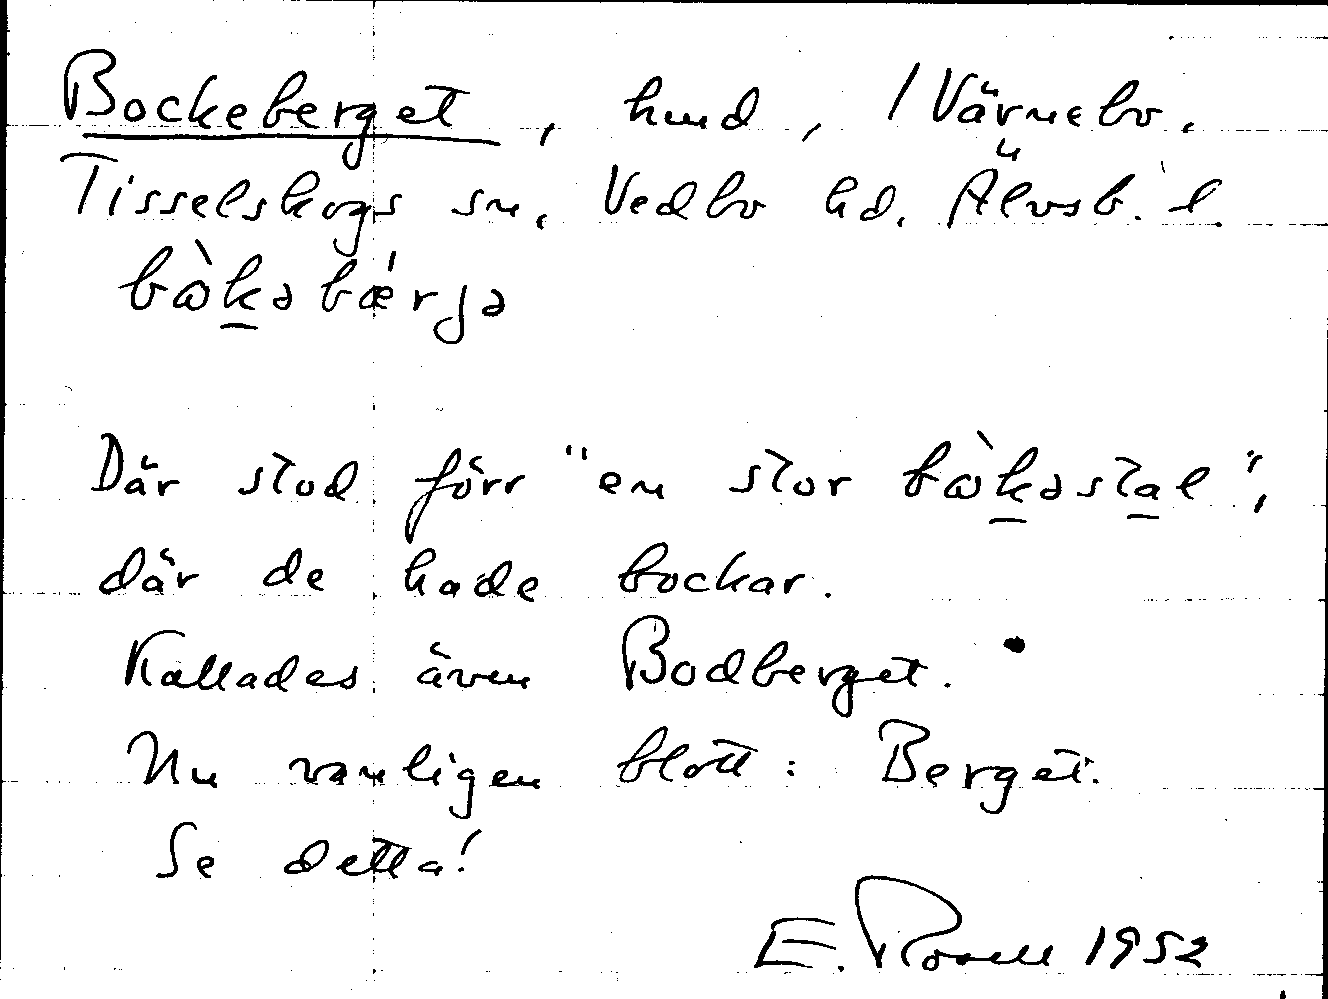 Bockeberget, hmd, 1 Värnebo.
Tisselskogs sn, Vedbo hd. Älvsb. l.
bὼkəbǽrjə
Där stod förr "en stor bὼkəstal",
där de hade bockar.
Kallades även Bodberget.
Nu vanligen blott: Berget.
Se detta!
E. Rosell 1952